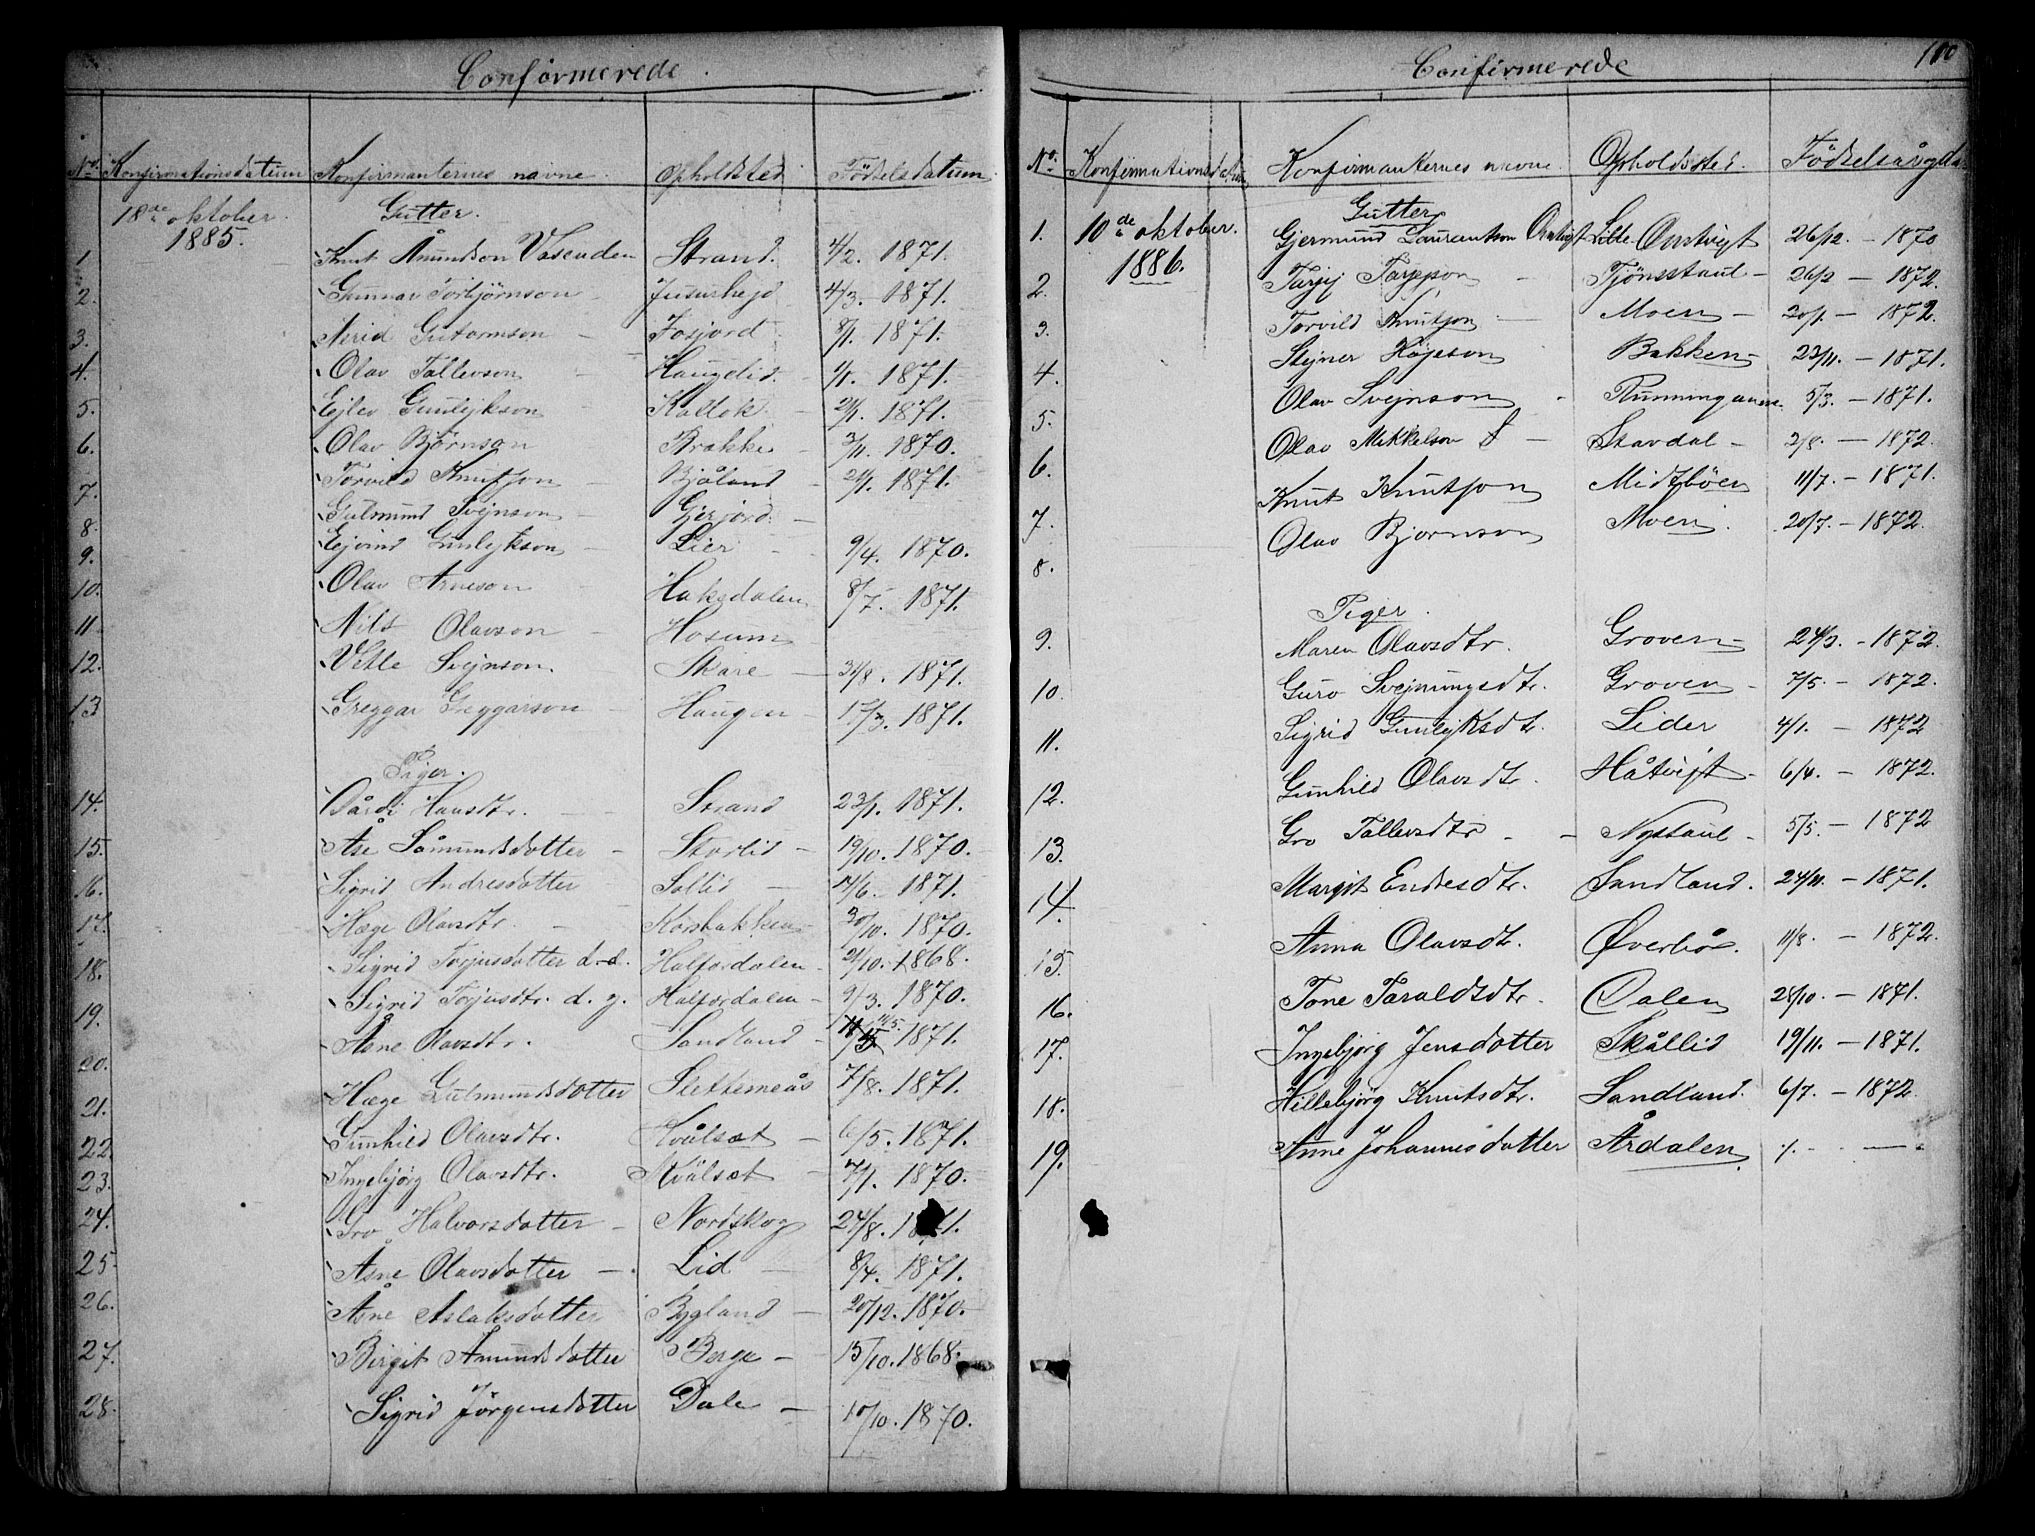 Confirmerede.
No. Konfirmationsdatum Konfirmanternes navne. Opholdsted Födselsdatum.
18de oktober 1885.
Gutter.
1 Knut Åmundson Vasenden Strand. 4/2. 1871.
2. Gunnar Torbjörnson 4/3. 1871.
3. Gutormson Fosjord 8/1. 1871.
4. Olav Tallevson Haugelid. 1/1. 1871.
5. Ejlev Gunlejkson Kaltok. 2/1. 1871.
6. Olav Björnson Brökke 3/11. 1870.
7. Torvild Knutson Bjåland 21/1. 1871.
8. Gutmund Svejnson Gjerjord.
9. Ejvind Gunlejkson Lier 9/4. 1870.
10. Olav Arneson Hakedalen 8/7. 1871.
11 Nils Olavson Hosum
12. Vetle Svejnson. Skare 31/8. 1871.
13 Greggar Greggarson Haugen 17/3. 1871.
Piger.
14. Bårdi Hansdtr. Strand 23/1. 1871.
15. Åse Såmundsdotter Storlid 19/10. 1870.
16. Sigrid Andresdotter Sollid 14/6. 1871.
17. Hæge Olavsdtr. Korsbakken 30/10. 1870.
18. Sigrid Torjusdotter d.d. Halfordalen 21/10. 1868.
19. Sigrid Torjusdtr. d. y. Halfordalen 9/3. 1870.
20. Åsne Olavsdtr. Sandland 11/5. 1871.
21. Hæge Gutmundsdotter Slettemeås 7/8. 1871.
22. Gunhild Olavsdtr. Kvålsæt 6/5. 1871.
23. Ingebjörg Olavsdtr. Kvålsæt 7/1. 1870.
24. Gro Halvorsdatter Nordskog 24/8. 1871.
25. Åsne Olavsdatter Lid 8/4. 1871.
26. Åsne Aslaksdatter Bygland 20/12. 1870.
27. Birgit Åmundsdatter Berge 15/10. 1868.
28. Sigrid Jörgensdotter Dale 10/10. 1870.
Confirmerede 100
No. Konfirmationsdatum Konfirmanternes navne. Opholdssted. Födselsår og da
10de oktober. 1886.
Gutter
1. Gjermund Laurantson Omtvejt Lille Omtvejt 26/12. - 1870
2. Tarjej Tarjejson Tjönsstaul 26/2 - 1872.
3. Torvild Knutson Moen 20/1. - 1872.
4. Stejner Höjeson Bakken 23/11. - 1871.
5. Olav Svejnson Runninganene. 5/3. - 1871.
6. Olav Mikkelson S Stavdal 3/8. - 1872.
7. Knut Knutson Midtböen 11/7. - 1871.
8. Olav Bjornson Moen. 20/7. - 1872.
Piger.
9. Maren Olavsdtr. Groven 24/3. - 1872.
10. Guro Svejnungsdtr. Groven 7/5. - 1872.
11. Sigrid Gunlejksdtr. Lider 4/1. - 1872
12. Gunhild Olavsdtr. Håtvejt 6/4. - 1872.
13. Gro Tallevsdtr Nystaul 5/5. - 1872
14. Margit Endresdtr. Sandland. 24/11. - 1871.
15. Anna Olavsdtr. Överbö. 11/8. - 1872.
16. Tone Taraldsdtr. Dalen 28/10. - 1871.
17. Ingebjörg Jensdatter Skållid 19/11. - 1871.
18. Hillebjörg Knutsdtr. Sandland. 6/7. - 1872.
19. Anne Johannesdatter Årdalen